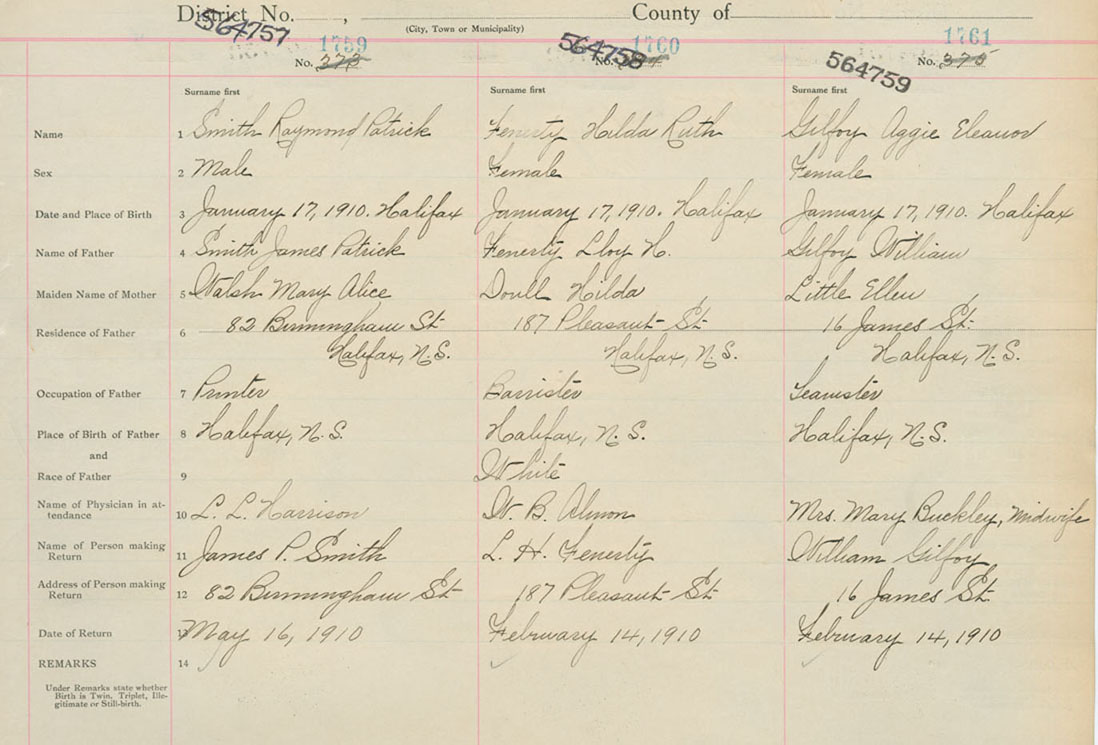 District No. , County of
(City, Town or Municipality)
564757 1759 564758 1760 564759 1761
No. 373 No. No. 375
Surname first Surname first Surname first
Name 1 Smith Raymond Patrick Fenerty Hilda Ruth Gilfoy Aggie Eleanor
Sex 2 Male Female Female
Date and Place of Birth 3 January 17, 1910. Halifax January 17, 1910. Halifax January 17, 1910. Halifax
Name of Father 4 Smith James Patrick Fenerty Lloy H. Gilfoy William
Maiden Name of Mother 5 Walsh Mary Alice Doull Hilda Little Ellen
Residence of Father 6 82 Birmingham St 187 Pleasant St 16 James St.
Halifax, N.S. Halifax, N.S. Halifax, N.S.
Occupation of Father 7 Printer Barrister Teamster
Place of Birth of Father 8 Halifax, N.S. Halifax, N.S. Halifax, N.S.
and
Race of Father 9 White
Name of Physician in at-
tendance 10 L. L. Harrison W. B. Almon Mrs. Mary Buckley, Midwife
Name of Person making
Return 11 James P. Smith L. H. Fenerty William Gilfoy
Address of Person making
Return 12 82 Birmingham St 187 Pleasant St. 16 James St.
Date of Return May 16, 1910 February 14, 1910 February 14, 1910
REMARKS 14
Under Remarks state whether
Birth is Twin, Triplet, Ille-
gitimate or Still-birth.